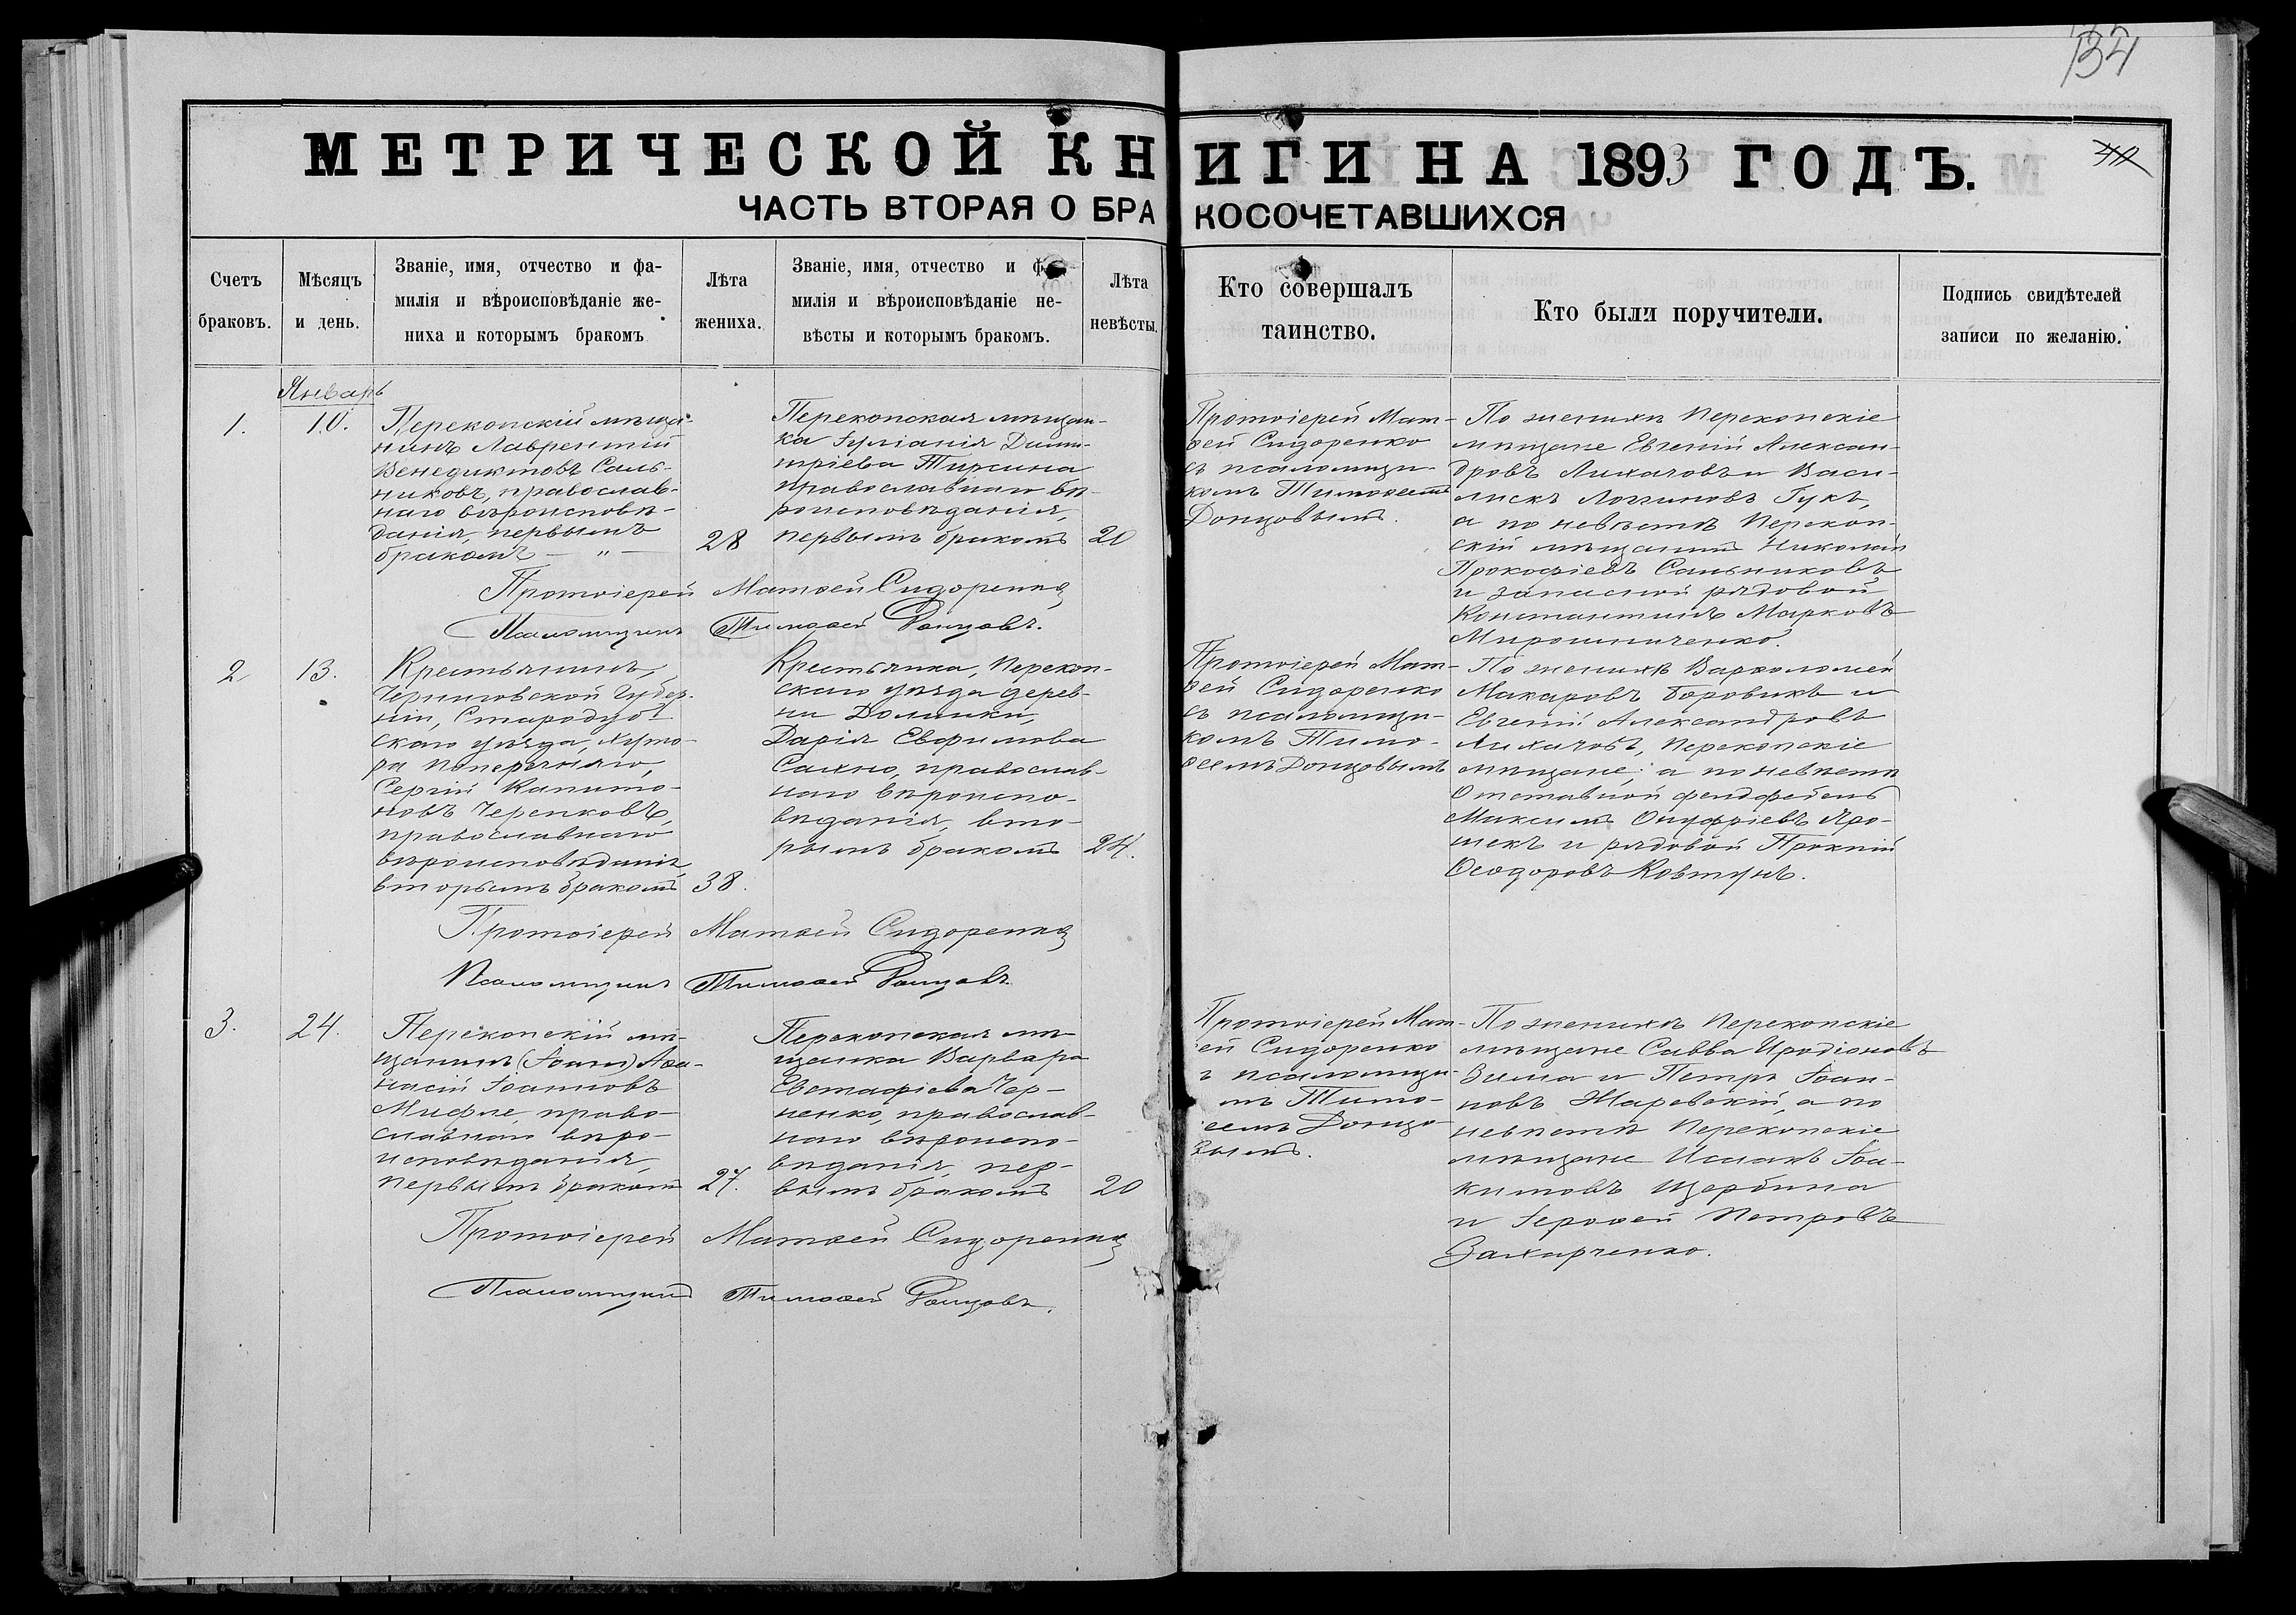 134
МЕТРИЧЕСКОЙ КНИГИ НА 1893 ГОДЪ.
ЧАСТЬ ВТОРАЯ О БРАКОСОЧЕТАВШИХСЯ
Счетъ
браковъ.
Мѣсяцъ
и день.
Званіе, имя, отчество и фа-
милія и вѣроисповѣданіе же-
ниха и которымъ бракомъ
Лѣта
жениха.
Званіе, имя, отчество и
милія и вѣроисповѣданіе не-
вѣсты и которымъ бракомъ.
Лѣта
невѣсты.
Кто совершалъ
таинство.
Кто были поручители.
Подпись свидѣтелей
записи по желанію.
Январь
1.
10.
Перекопскій мѣща-
нинъ Лаврентій
Венедиктовъ Саль-
никовъ, православ-
наго вѣроисповѣ-
данія, первымъ
бракомъ — " —
28
Перекопская мѣщан-
ка Іуліанія Дими-
тріева
православнаго вѣ-
роисповѣданія,
первымъ бракомъ
20
Протоіерей Мат-
ѳей Сидоренко
съ псаломщи-
комъ Тимоѳеемъ
Донцовымъ.
По женихѣ Перекопскіе
мѣщане Евгеній Алексан-
дровъ Лихачовъ и Васи-
лискъ Логгиновъ Гукъ,
а по невѣстѣ Перекоп-
скій мѣщанинъ Николай
Прокофіевъ Сальниковъ
и запасной рядовой
Константинъ Марковъ
Мирошниченко.
Протоіерей Матѳей Сидоренко
Псаломщикъ Тимоѳей Донцовъ.
2
13.
Крестьянинъ,
Черниговской Губер-
ніи, Стародуб-
скаго уѣзда, хуто-
ра Поперечнаго,
Сергій Капито-
новъ Черенковъ,
православнаго
вѣроисповѣданія,
вторымъ бракомъ
38.
Крестьянка, Перекоп-
скаго уѣзда дерев-
ни Долинки,
Дарія Евфимова
Сахно, православ-
наго вѣроиспо-
вѣданія, вто-
рымъ бракомъ
24.
Протоіерей Мат-
ѳей Сидоренко
съ псаломщи-
комъ Тимо-
ѳеемъ Донцовымъ
По женихѣ Варѳоломей
Макаровъ Боровикъ и
Евгеній Александровъ
Лихачовъ, Перекопскіе
мѣщане; а по невѣстѣ
Отставной фельдфебель
Максимъ Онуфріевъ Яро-
шекъ и рядовой Прокпій
Ѳеодоровъ Ковтунъ.
Протоіерей Матѳей Сидоренко
Псаломщикъ Тимоѳей Донцовъ.
3.
24.
Перекопскій мѣ-
щанинъ (Іоаннъ) Аѳа-
насій Іоанновъ
право-
славнаго вѣро-
исповѣданія,
первымъ бракомъ
27.
Перекопская мѣ-
щанка Варвара
Евстафіева Чер-
ненко, православ-
наго вѣроиспо-
вѣданія, пер-
вымъ бракомъ
20
Протоіерей Мат-
ѳей Сидоренко
ъ псаломщи-
мъ Тимо-
ѳеемъ Донцо-
вымъ.
По женихѣ Перекопскіе
мѣщане Савва Иродіоновъ
Зима и Петръ Іоан-
новъ Жаревскій, а по
невѣстѣ Перекопскіе
мѣщане Исаакъ Іоа-
кимовъ Щербина
и Іероѳей Петровъ
Захарченко.
Протоіерей Матѳей Сидоренко
Псаломщикъ Тимоѳей Донцовъ.